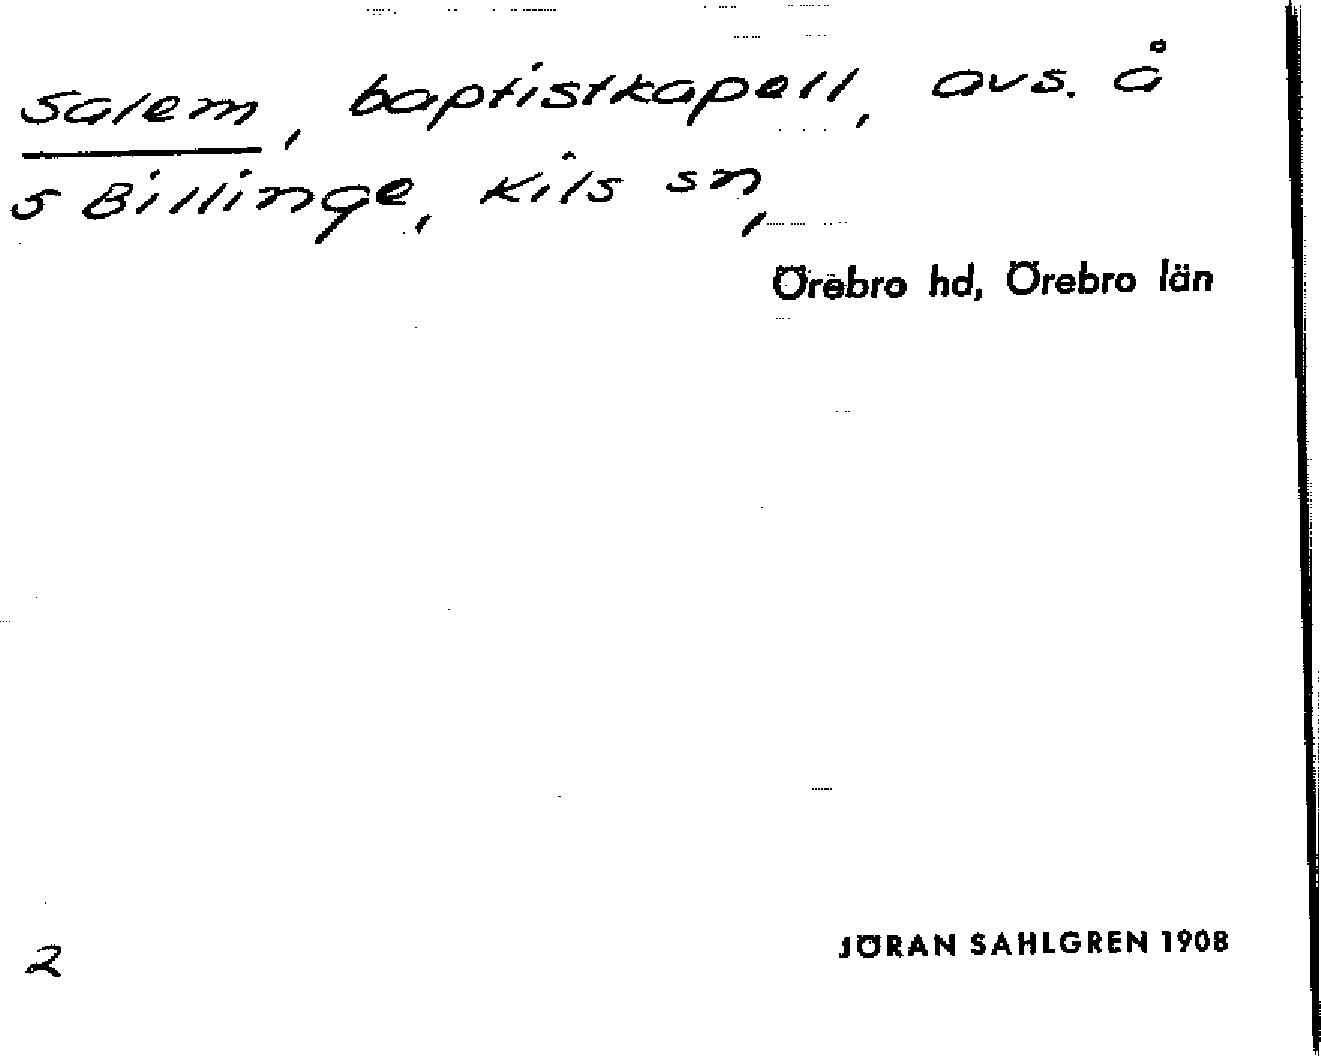 Salem, baptistkapell, avs. å
S Billinge, Kils sn,
Örebro hd, Örebro län
2
JÖRAN SAHLGREN 1908